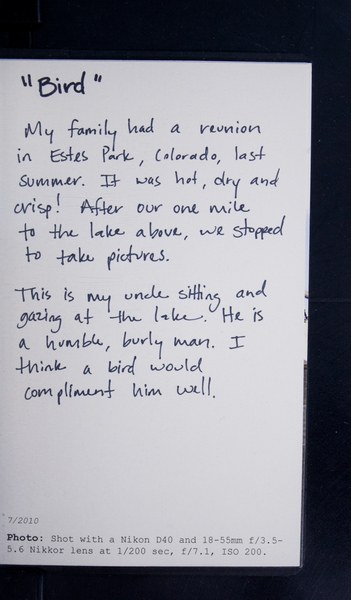 "Bird"
My family had a reunion
in Estes Park, Colorado, last
summer. It was hot, dry and
crisp! After our one mile
to the lake above, we stopped
to take pictures.
This is my uncle sitting and
gazing at the lake. He is
a humble, burly man. I
think a bird would
compliment him well.
7/2010
Photo: Shot with a Nikon D40 and 18-55mm f/3.5-
5.6 Nikkor lens at 1/200 sec, f/7.1, ISO 200.